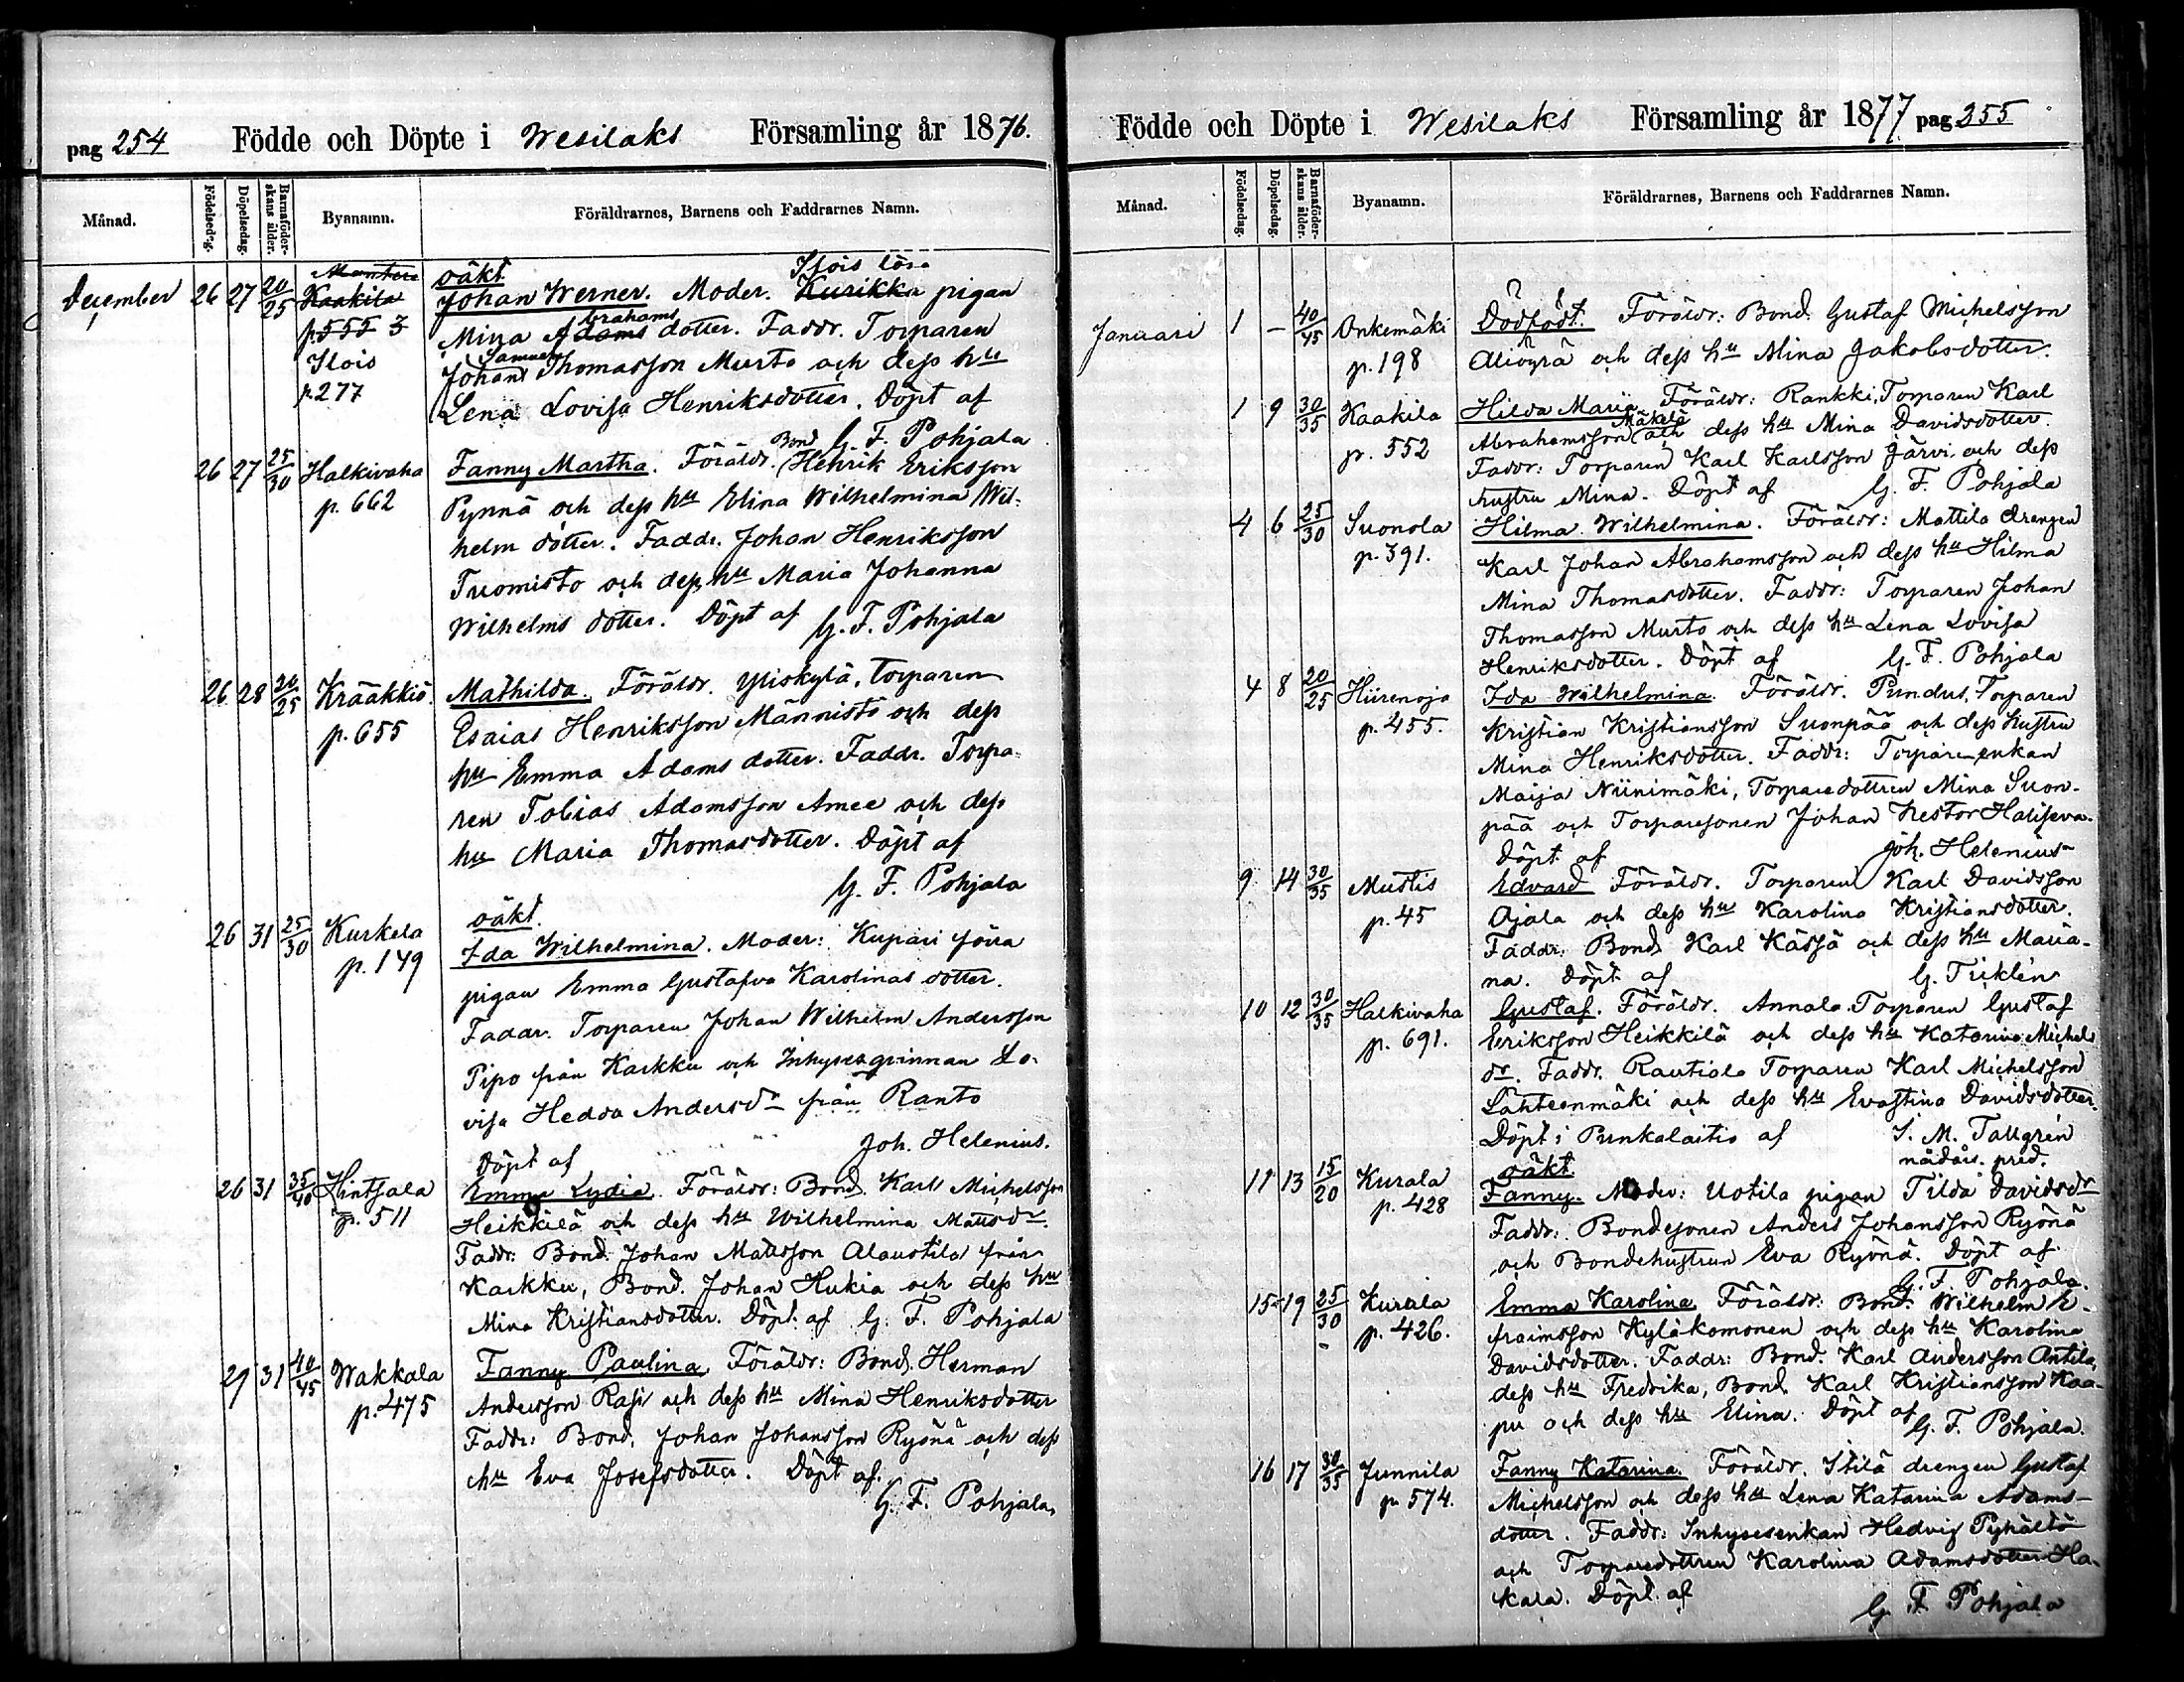 pag 254 Födde och Döpte i Wesilaks Församling år 1876.
Månad. Födelsedag. Döpelsedag. Barnaföderskans ålder. Byanamn. Föräldrarnes, Barnens och Faddrarnes Namn.
oäkt Ilois
December 26 27 20/25 Kaakila Johan Werner. Moder. Kurikka pigan
p. 555 Mina Adams Abrahams dotter. Faddr. Torparen
Ilois Johan Samuel Thomasson Murto och dess hu
p. 277 Lena Lovisa Henriksdotter. Döpt af
G. F. Pohjala
26 27 25/30 Halkivaha Fanny Martha. Föräldr. Bond. Henrik Eriksson
p. 662 Pynnä och dess hu Elina Wilhelmina Wil-
helm dotter. Faddr. Johan Henriksson
Tuomisto och dess hu Maria Johanna
Wilhelms dotter. Döpt af G. F. Pohjala
26 28 20/25 Krääkkiö Mathilda. Föräldr. Yliskylä, torparen
p. 655 Esaias Henriksson Männistö och dess
hu Emma Adams dotter. Faddr. Torpa-
ren Tobias Adamsson Amee och dess
hu Maria Thomasdotter. Döpt af
G. F. Pohjala
oäkt.
26 31 25/30 Kurkela Ida Wilhelmina. Moder: Kupari förra
p. 149 pigan Emma Gustafva Karolinas dotter.
Faddr. Torparen Johan Wilhelm Andersson
Pipo från Karkku och Inhysesqvinnan Lo-
visa Hedda Andersdr från Ranto
Döpt af Joh. Helenius.
26 31 35/40 Hintsala Emma Lydia. Föräldr: Bond. Karl Michelsson
p. 511 Heikkilä och dess hu Wilhelmina Mattsdr.
Faddr: Bond. Johan Mattsson Alaustila från
Karkku, Bond. Johan Hukia och dess hu
Mina Kristiansdotter. Döpt af G. F. Pohjala
29 31 40/45 Wakkala Fanny Paulina Föräldr: Bond. Herman
p. 475 Andersson Rasi och dess hu Mina Henriksdotter
Faddr: Bond. Johan Johansson Ryönä och dess
hu Eva Josefsdotter. Döpt af.
G. F. Pohjala
Födde och Döpte i Wesilaks Församling år 1877 pag 255
Månad. Födelsedag. Döpelsedag. Barnaföderskans ålder. Byanamn. Föräldrarnes, Barnens och Faddrarnes Namn.
Januari 1 – 40/45 Onkemäki Dödfödt. Föräldr: Bond. Gustaf Michelsson
p. 198 och dess hu Mina Jakobsdotter.
1 9 30/35 Kaakila Hilda Maria Föräldr: Rankki, Torparen Karl
p. 552 Abrahamsson Mäkelä och dess hu Mina Davidsdotter.
Faddr: Torparen Karl Karlsson Järvi och dess
hustru Mina. Döpt af G. F. Pohjala
4 6 25/30 Suonola Hilma Wilhelmina. Föräldr: Mattila drengen
p. 391. Karl Johan Abrahamsson och dess hu Hilma
Mina Thomasdotter. Faddr: Torparen Johan
Thomasson Murto och dess hu Lena Lovisa
Henriksdotter. Döpt af G. F. Pohjala
4 8 20/25 Hiirenoja Ida Wilhelmina. Föräldr. Pundus, Torparen
p. 455. Kristian Kristiansson Suonpää och dess hustru
Mina Henriksdotter. Faddr: Torpareenkan
Maija Niinimäki, Torparedottren Mina Suon-
pää och Torparesonen Johan Nestor
Döpt af Joh. Helenius
9 14 30/35 Mustis Edvard Föräldr. Torparen Karl Davidsson
p. 45 Ajala och dess hu Karolina Kristiansdotter.
Faddr. Bond. Karl Kässä och dess hu Maria-
na. Döpt af G. Ticklén
10 12 30/35 Halkivaha Gustaf. Föräldr. Annala Torparen Gustaf
p. 691. Eriksson Heikkilä och dess hu Katarina Michels
dr. Faddr. Rautiala Torparen Karl Michelsson
Lähteenmäki och dess hu Evastina Davidsdotter.
Döpt i Punkalaitio af S. M. Tallgrén
nådårs. pred.
oäkt.
11 13 15/20 Kurala Fanny. Moder: Uotila pigan Tilda Davidsdr
p. 428 Faddr. Bondesonen Anders Johansson Ryönä
och Bondehustrun Eva Ryönä. Döpt af
G. F. Pohjala.
15 19 25/30 Kurala Emma Karolina Föräldr: Bond. Wilhelm E-
p. 426. fraimsson Kyläkomonen och dess hu Karolina
Davidsdotter. Faddr: Bond. Karl Andersson Antila,
dess hu Fredrika, Bond. Karl Kristiansson Kaa-
pu och dess hu Elina. Döpt af
G. F. Pohjala.
16 17 30/35 Junnila Fanny Katarina. Föräldr. Itilä drengen Gustaf
p. 574. Michelsson och dess hu Lena Katarina Adams-
dotter. Faddr: Inhysesenkan Hedvig Pyhältö
och Torparedottren Karolina Adamsdotter Ha-
kara. Döpt af
G. F. Pohjala